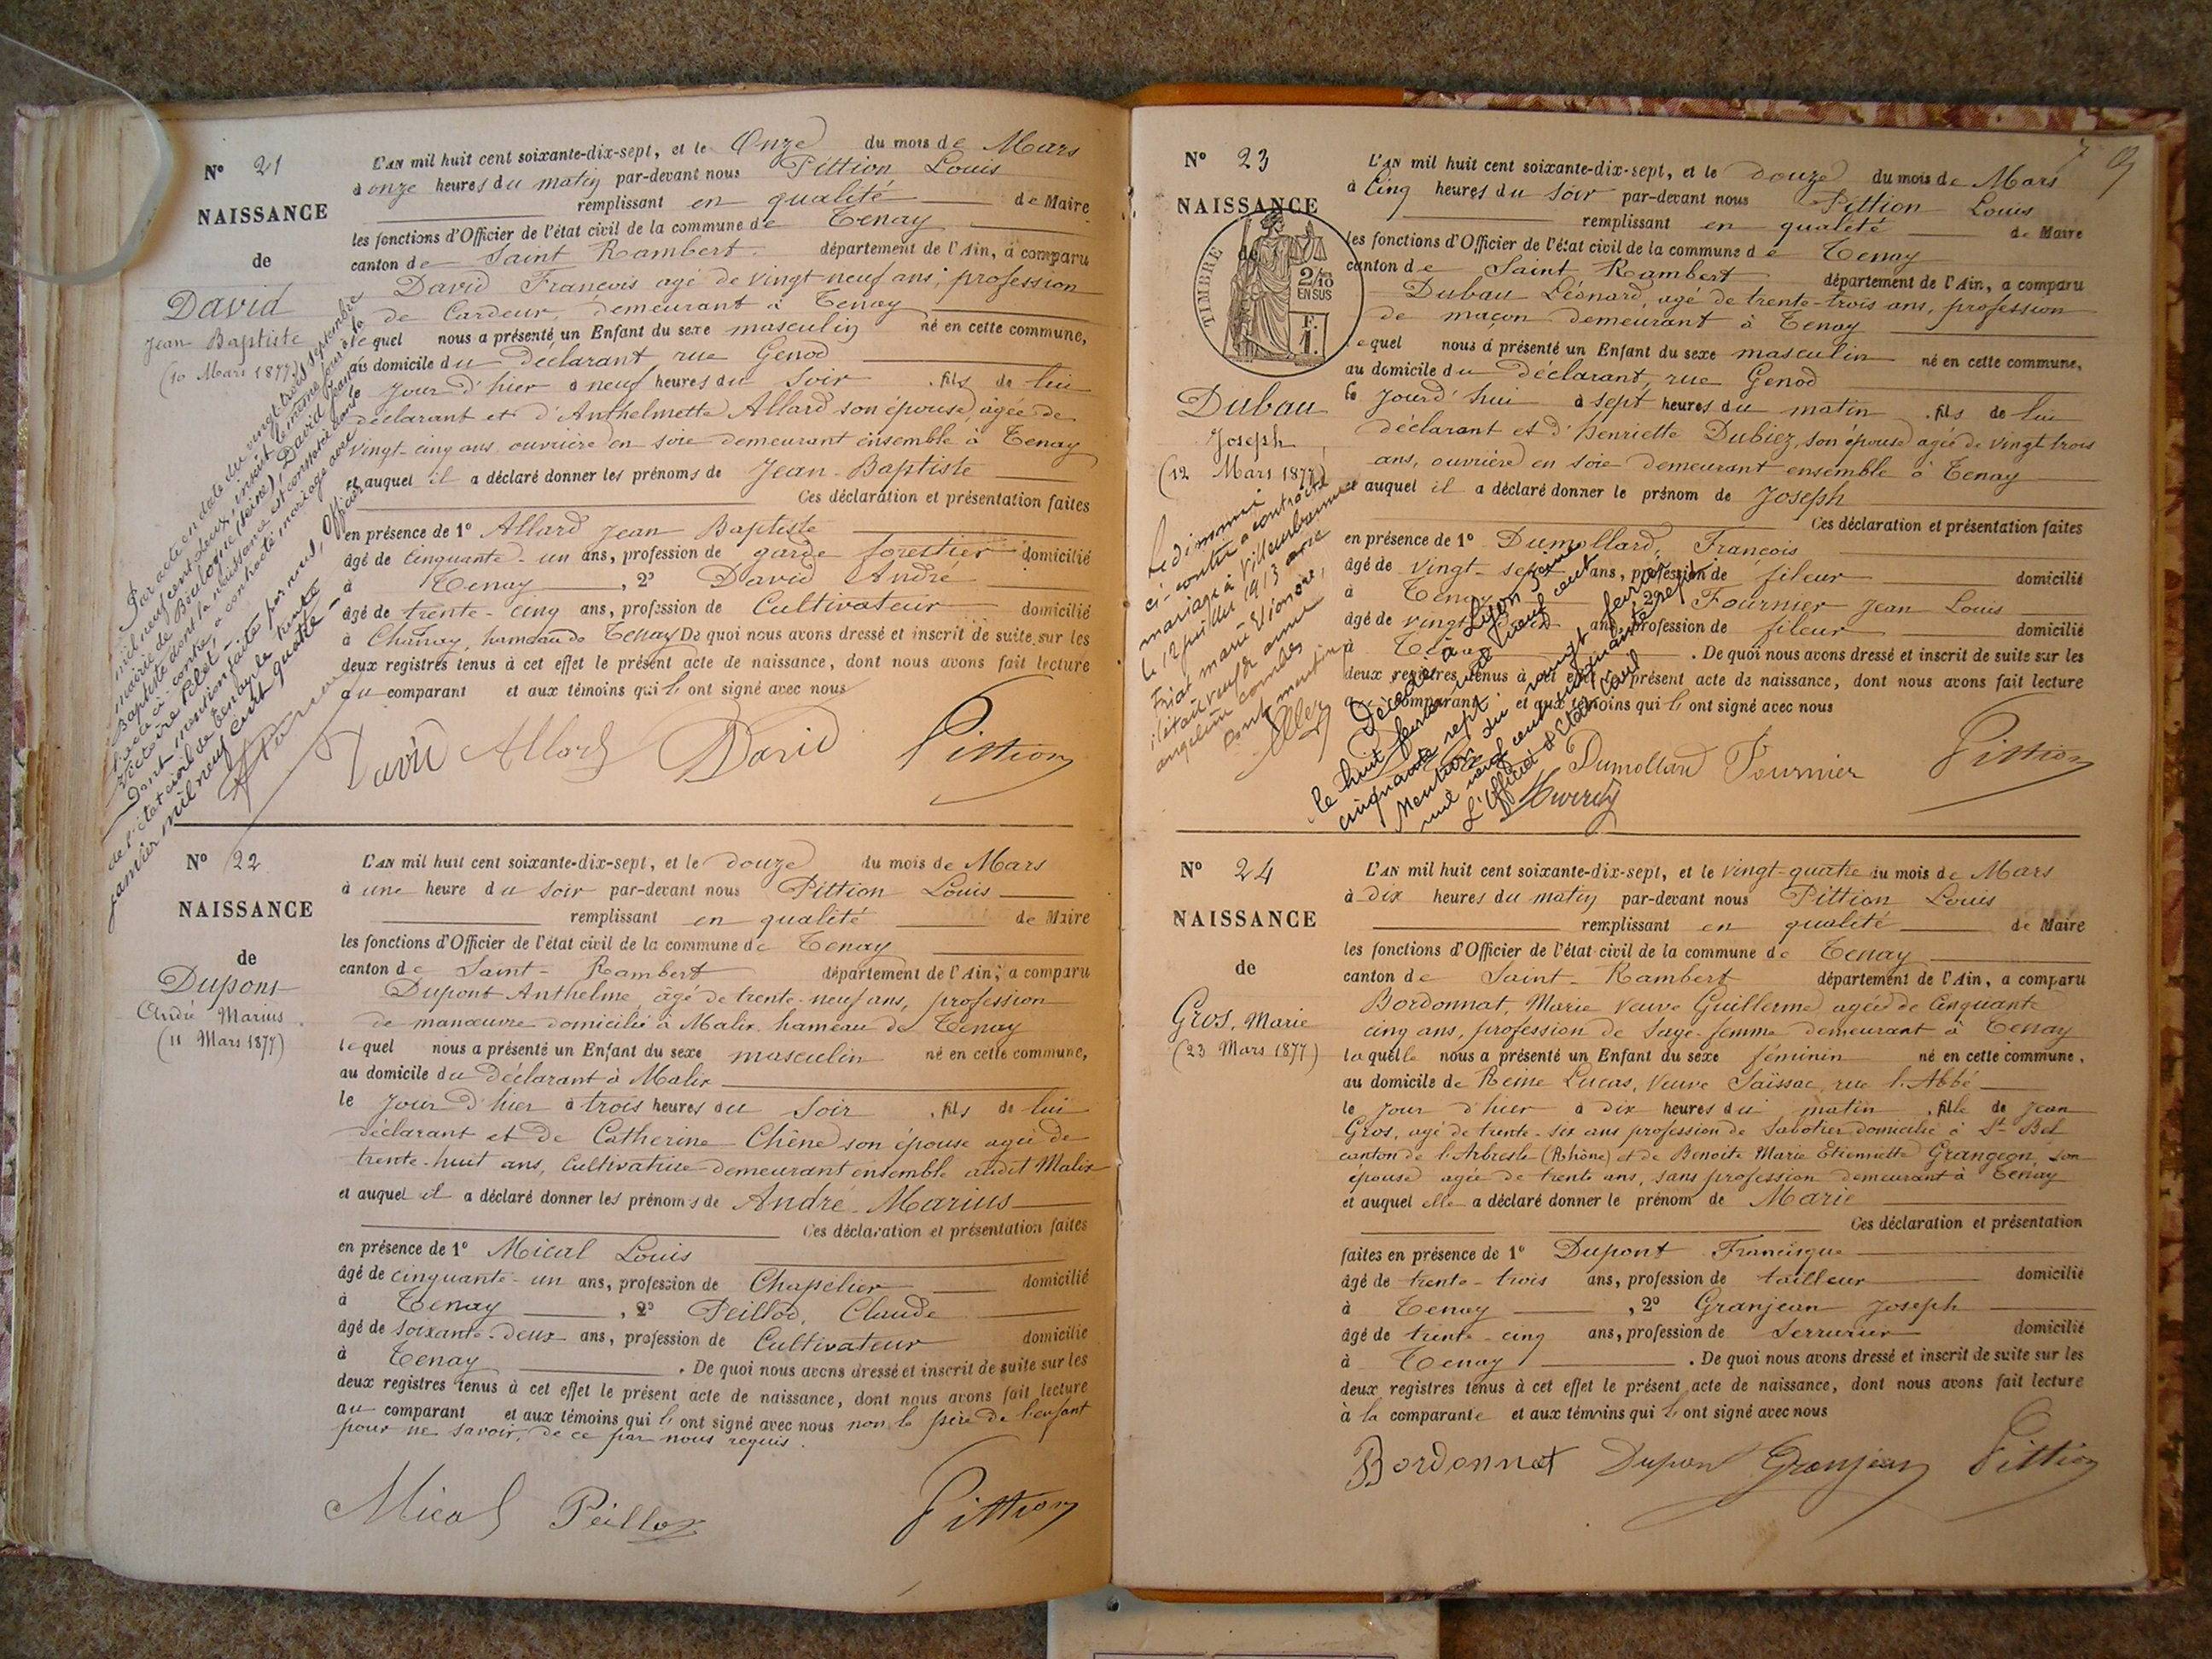 N° 21
NAISSANCE
de
David
Jean Baptiste
(10 Mars 1877)
L'AN mil huit cent soixante-dix-sept, et le Onze du mois de Mars
à onze heures du matin par-devant nous Pittion Louis
remplissant en qualité de Maire
les fonctions d'Officier de l'état civil de la commune de Tenay
canton de Saint Rambert département de l'Ain, a comparu
David François agé de vingt-neuf ans, profession
de Cardeur, demeurant à Tenay
lequel nous a présenté un Enfant du sexe masculin né en cette commune,
au domicile du déclarant rue Genod
le Jour d'hier à neuf heures du Soir fils de lui
déclarant et d'Anthelmette Allard son épouse agée de
vingt-cinq ans ouvrière en soie demeurant ensemble à Tenay
et auquel il a déclaré donner les prénoms de Jean-Baptiste
Ces déclaration et présentation faites
en présence de 1° Allard Jean Baptiste
âgé de Cinquante-un ans, profession de garde forestier domicilié
à Tenay, 2° David André
âgé de trente-cinq ans, profession de Cultivateur domicilié
à Chanay, hameau de Tenay De quoi nous avons dressé et inscrit de suite sur les
deux registres tenus à cet effet le présent acte de naissance, dont nous avons fait lecture
au comparant et aux témoins qui ont signé avec nous
David Allard David Pittion
Par acte en date du vingt trois septembre
mil neuf cent deux, inscrit le même jour à la
mairie de Boulogne (Seine), David Jean
Baptiste dont la naissance est constatée dans
l'acte ci-contre, a contracté mariage avec
Victoire Pilet
Dont mention faite par nous, Officier
de l'état civil de Tenay le trente
janvier mil neuf cent quatre
N° 22
NAISSANCE
de
Dupont
André Marius
(11 Mars 1877)
L'AN mil huit cent soixante-dix-sept, et le douze du mois de Mars
à une heure du soir par-devant nous Pittion Louis
remplissant en qualité de Maire
les fonctions d'Officier de l'état civil de la commune de Tenay
canton de Saint-Rambert département de l'Ain, a comparu
Dupont Anthelme âgé de trente-neuf ans, profession
de manœuvre domicilié à Malix hameau de Tenay
lequel nous a présenté un Enfant du sexe masculin né en cette commune,
au domicile du déclarant à Malix
le Jour d'hier à trois heures du Soir, fils de lui
déclarant et de Catherine Chêne son épouse agée de
trente-huit ans, Cultivatrice demeurant ensemble audit Malix
et auquel il a déclaré donner les prénoms de André-Marius
Ces déclaration et présentation faites
en présence de 1° Mical Louis
âgé de cinquante-un ans, profession de Chapelier domicilié
à Tenay, 2° Peillod, Claude
âgé de soixante-deux ans, profession de Cultivateur domicilié
à Tenay. De quoi nous avons dressé et inscrit de suite sur les
deux registres tenus à cet effet le présent acte de naissance, dont nous avons fait lecture
au comparant et aux témoins qui ont signé avec nous non le père de l'enfant
pour ne savoir, de ce par nous requis.
Mical Peillod Pittion
7 9
N° 23
NAISSANCE
de
TIMBRE
2/10
EN SUS
F.
1.
Dubau
Joseph
(12 Mars 1877)
L'AN mil huit cent soixante-dix-sept, et le douze du mois de Mars
à Cinq heures du Soir par-devant nous Pittion Louis
remplissant en qualité de Maire
les fonctions d'Officier de l'état civil de la commune de Tenay
canton de Saint Rambert département de l'Ain, a comparu
Dubau Léonard, agé de trente-trois ans, profession
de maçon demeurant à Tenay
lequel nous a présenté un Enfant du sexe masculin né en cette commune,
au domicile du déclarant, rue Genod
le Jourd'hui à sept heures du matin, fils de lui
déclarant et d'Henriette Dubiez, son épouse agée de vingt trois
ans, ouvrière en soie demeurant ensemble à Tenay
et auquel il a déclaré donner le prénom de Joseph
Ces déclaration et présentation faites
en présence de 1° Dumollard, François
âgé de vingt-sept ans, profession de fileur domicilié
à Tenay, 2° Fournier Jean Louis
âgé de vingt ans, profession de fileur domicilié
à Tenay. De quoi nous avons dressé et inscrit de suite sur les
deux registres tenus à cet effet le présent acte de naissance, dont nous avons fait lecture
au comparant et aux témoins qui ont signé avec nous
Dumollard Fournier Pittion
Le dénommé
ci-contre a contracté
mariage à Villeurbanne
le 12 juillet 1913 avec
il était veuf de
Dont mention
Décédé à Lyon 3ème
le huit février mil neuf cent
cinquante sept.
Mention du vingt février
mil neuf cent cinquante sept
L'Officier d'Etat Civil
N° 24
NAISSANCE
de
Gros, Marie
(23 Mars 1877)
L'AN mil huit cent soixante-dix-sept, et le vingt-quatre du mois de Mars
à dix heures du matin par-devant nous Pittion Louis
remplissant en qualité de Maire
les fonctions d'Officier de l'état civil de la commune de Tenay
canton de Saint-Rambert département de l'Ain, a comparu
Bordonnat, Marie Veuve Guillerme agée de Cinquante
cinq ans, profession de Sage-femme demeurant à Tenay
laquelle nous a présenté un Enfant du sexe féminin né en cette commune,
au domicile de Reine Lucas, Veuve Saïssac, rue l'Abbé
le Jour d'hier à dix heures du matin, fille de Jean
Gros, agé de trente-six ans profession de Sabotier domicilié à St Bel
canton de l'Arbresle (Rhône) et de Benoîte Marie Etiennette Grangeon son
épouse agée de trente ans, sans profession demeurant à Tenay
et auquel elle a déclaré donner le prénom de Marie
Ces déclaration et présentation
faites en présence de 1° Dupont Francisque
âgé de trente-trois ans, profession de tailleur domicilié
à Tenay, 2° Granjean Joseph
âgé de trente-cinq ans, profession de Serrurier domicilié
à Tenay. De quoi nous avons dressé et inscrit de suite sur les
deux registres tenus à cet effet le présent acte de naissance, dont nous avons fait lecture
à la comparante et aux témoins qui ont signé avec nous
Bordonnat Dupont Granjean Pittion